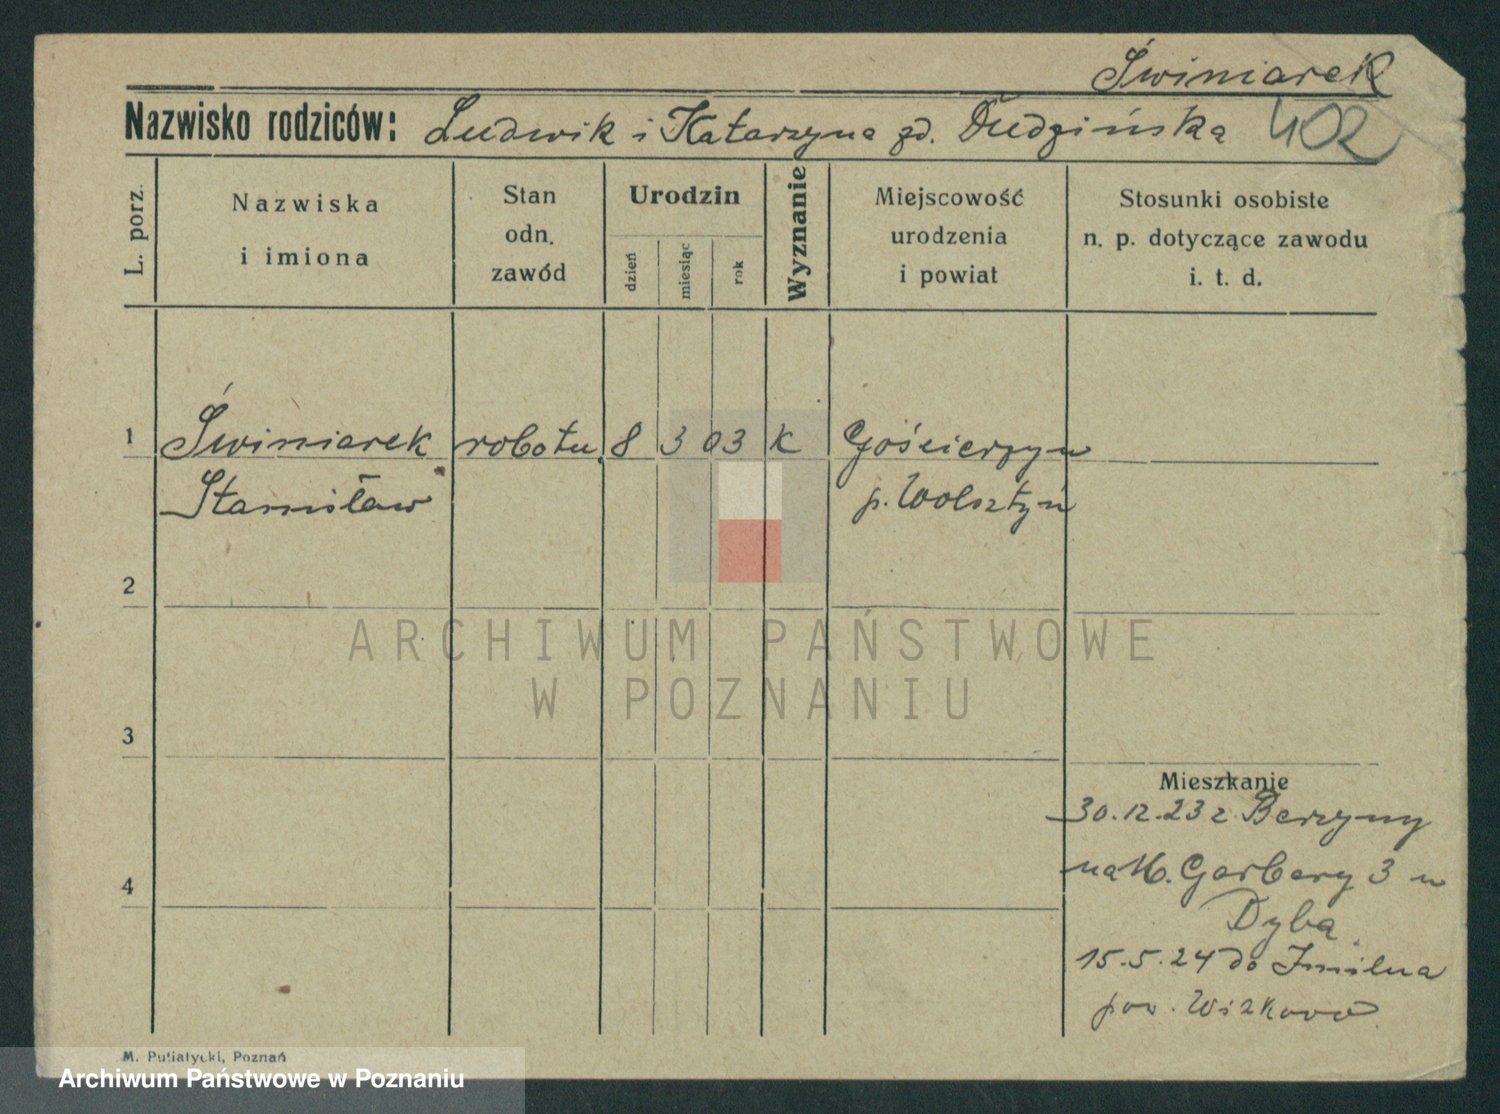 Świniarek
Nazwisko rodziców: Ludwik i Katarzyna zd. Dudzińska 402
L. porz.
Nazwiska
i imiona
Stan
odn.
zawód
Urodzin
dzień
miesiąc
rok
Wyznanie
Miejscowość
urodzenia
i powiat
Stosunki osobiste
n. p. dotyczące zawodu
i. t. d.
1 Świniarek robotn. 8 3 03 k Gościeszyn
Stanisław p. Wolsztyn
2
ARCHIWUM PAŃSTWOWE
W POZNANIU
3
Mieszkanie
30.12.23 z Berzyny
na M. Garbary 3 u
4
Dyba
15.5.24 do
pow. Witkowo
M. Putiatycki, Poznań
Archiwum Państwowe w Poznaniu